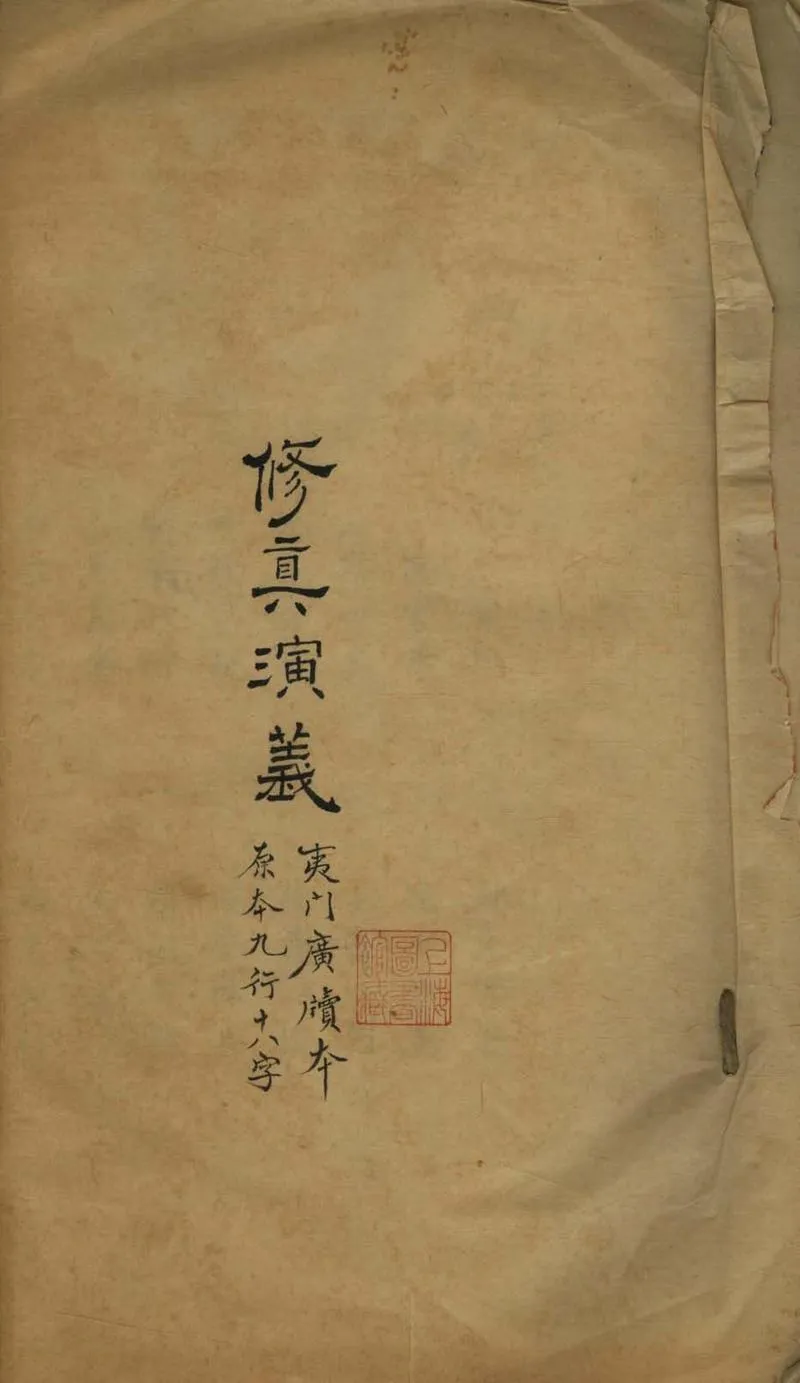 修真演義
夷门廣牘本
原本九行十八字
上海
圖書
館藏